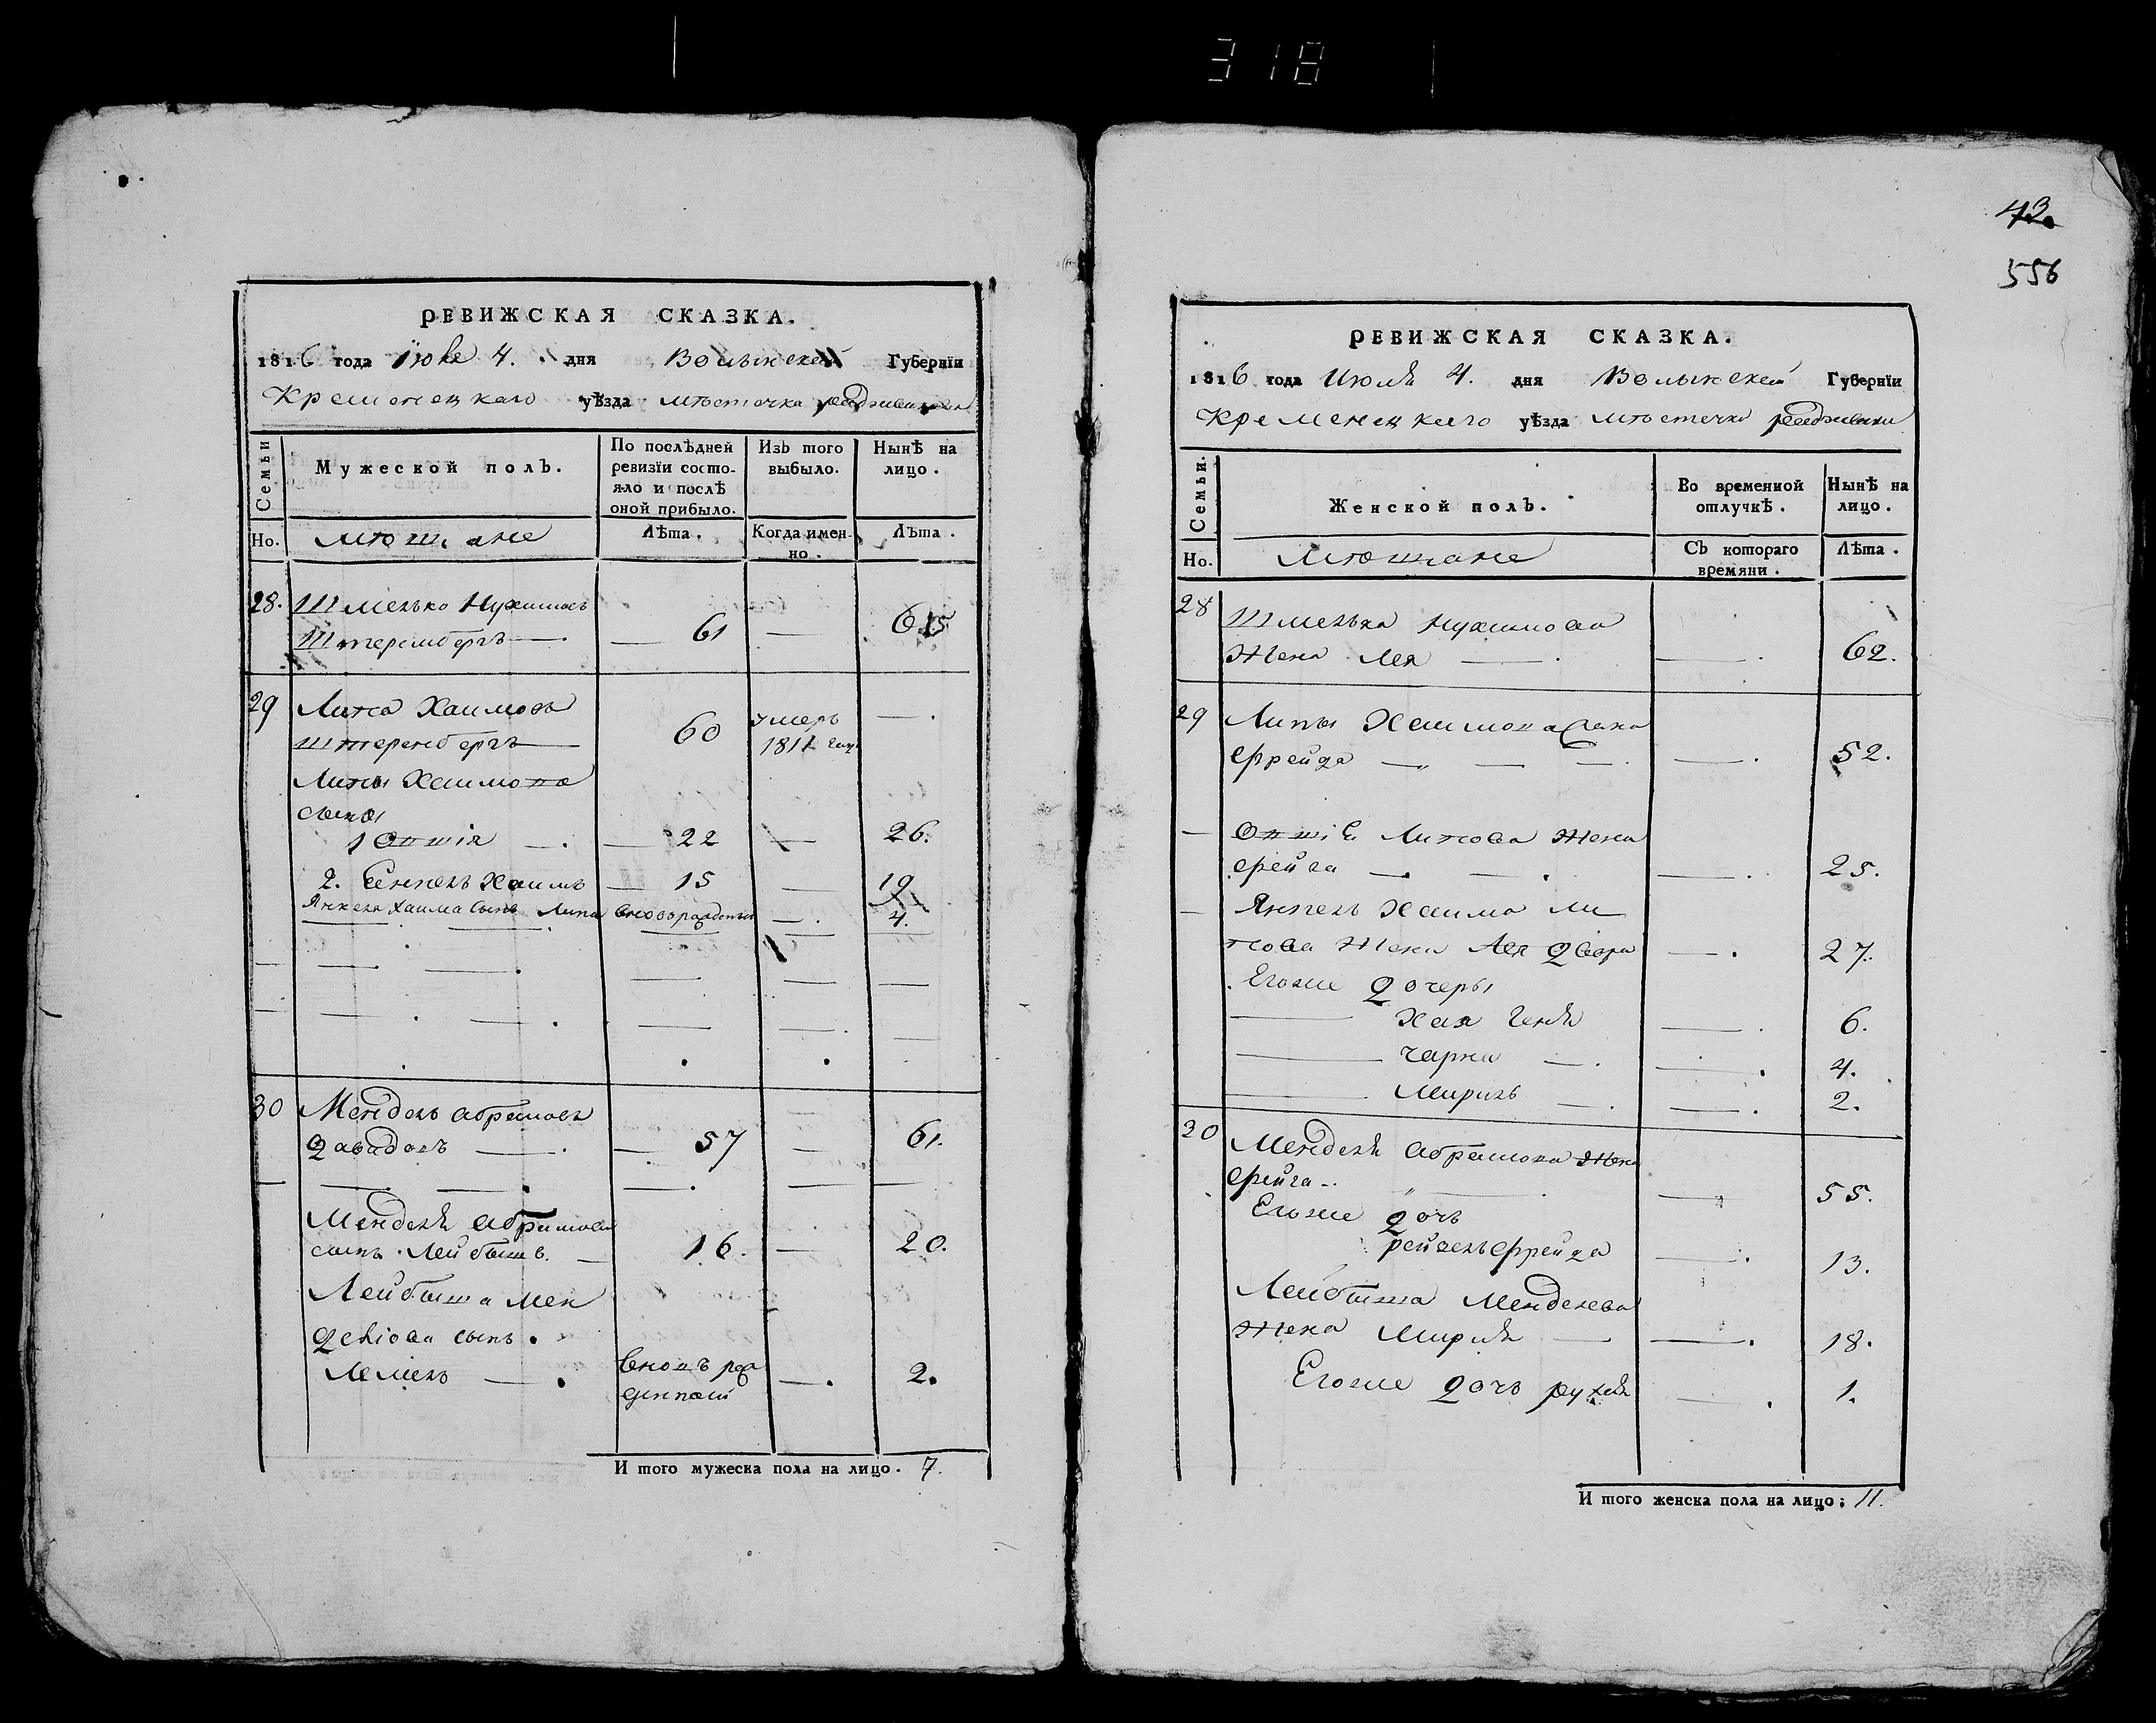 318
РЕВИЖСКАЯ СКАЗКА.
1816 года Июля 4. дня Волынской Губернїи
Кременецкаго уѣзда мѣстечка
Семьи
Мужеской полъ.
По послѣдней ревизїи состо-
яло и послѣ
оной прибыло.
Изъ того выбыло.
Нынѣ на лицо.
Но.
мѣщане
Лѣта.
Когда имен-
но.
Лѣта.
28. Шмелько
Штеремберъ — 61 — 65
29 Липа Хаимовъ
штеренберъ 60 умеръ 1811 — .
Липы Хаимова
сыны
1 — 22 — 26.
2. Хаимъ — 15 — 19
Янкеля Хаима сынъ Липа вновьрожденъ — . 4.
30 Мендель Абрамовъ
— 57 — 61.
Менделя Абрамова
сынъ Лейбышъ. — 16. — 20.
Лейбыша Мен
делїова сынъ.
— . вновъ рож
денной — . 2.
И того мужеска пола на лицо. 7.
43.
556
РЕВИЖСКАЯ СКАЗКА.
1816 года Июля 4. дня Волынской Губернїи
Кременецкаго уѣзда мѣстечка
Семьи.
Женской полъ.
Во временной
отлучкѣ.
Нынѣ на
лицо.
Но.
мѣщане
Съ котораго
времяни.
Лѣта.
28 Шмелька
жена Лея — . — . 62.
29 Липы Хаимова жена
Фрейда — — — . — . 52.
— Липова жена
Фейга — . — . — . 25.
— Янкель Хаима Ли
пова жена Лея Двора — . 27.
Егоже дочеры
— Хая Геня — . 6.
— Чарна — . — . 4.
— Мириль — . — . 2.
30 Менделя Абрамова жена
Фейга — 55.
Егоже дочь
Рейзель Фрейда — . 13.
Лейбыша Менделева
жена Мирля — — . 18.
Егоже дочь Рухля — . 1.
И того женска пола на лицо: 11.